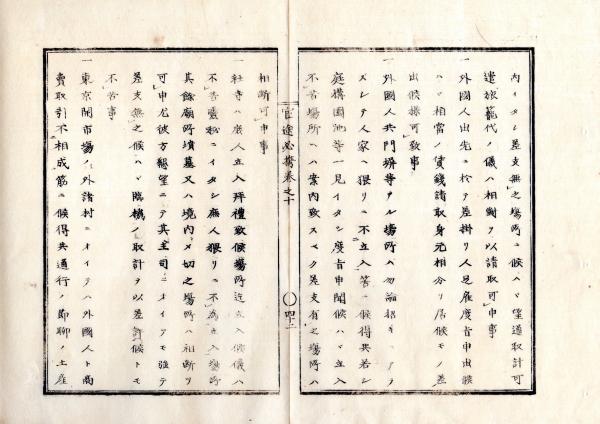 内イタシ差支無之場所ニ候ハヽ望通取計可
遣旅籠代ノ儀ハ相對ヲ以請取可申事
一外國人出先ニ於テ差掛リ人足雇度旨申出候
ハヽ相當ノ賃錢請取身元相分リ居候モノ差
出候樣可致事
一外國人共門塀等アル場所ハ勿論
スシテ人家ヘ猥リニ不立入筈ニ候得共若シ
庭構園池等一見イタシ度旨申聞候ハヽ立入
不苦場所ハ案内致スヘク差支有之場所ハ
官途必携卷之十
四十二
相斷可申事
一社寺ハ庶人立入拜禮致候場所迄立入候儀ハ
不苦靈秘ニイタシ庶人猥リニ不爲立入場所
其餘廟所墳墓又ハ境内〆切之場所ハ相斷リ
可申尤彼方懇望ニテ其主司ニオイテモ強テ
差支無之候ハヽ臨機ノ取計ヲ以差許候トモ
不苦事
一東京開市場ノ外諸村ニオイテハ外國人ト商
賣取引不相成筋ニ候得共通行ノ節聊ノ土産